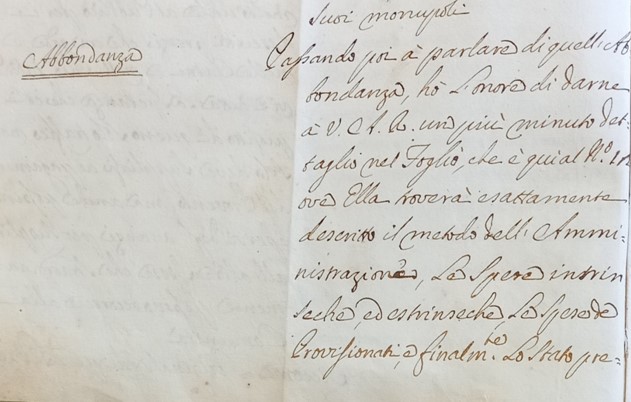 suoi monupoli
Abbondanza
Passando poi à parlare di quell'Ab
bondanza, hò L'onore di darne
à V. A. R. un più minuto det-
taglio nel Foglio, che è qui al N.º
ove Ella roverà esattamente
descritto il metodo dell'Ammi-
nistrazione, Le Spese intrin
seche, ed estrinseche, Le Spese de
Provisionati, e finalm.te Lo Stato pre=